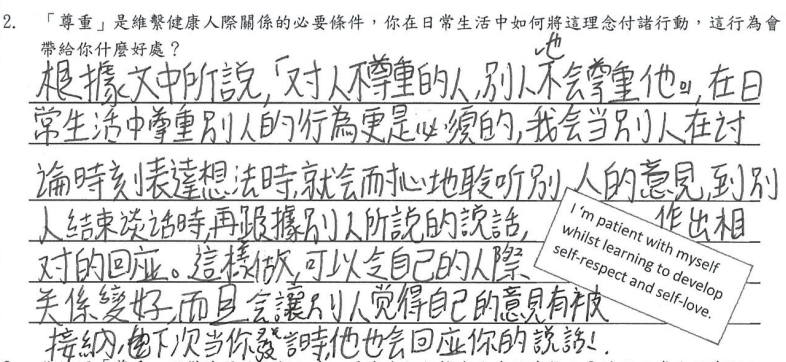 2. 「尊重」是維繫健康人際關係的必要條件，你在日常生活中如何將這理念付諸行動，這行為會
帶給你什麼好處？
根據文中所說，「对人不尊重的人，别人也不会尊重他」，在日
常生活中尊重别人的行為更是必須的，我会当别人在讨
論時刻表達想法時，就会而扗心地聆听别人的意見，到别
人结束谈话時，再跟據别人所説的説話，作出相
对的回应。這樣做，可以令自己的人際
关係變好，而且会讓别人觉得自己的意見有被
接納，下次当你發言時，他也会回应你的説話！
I 'm patient with myself
whilst learning to develop
self-respect and self-love.